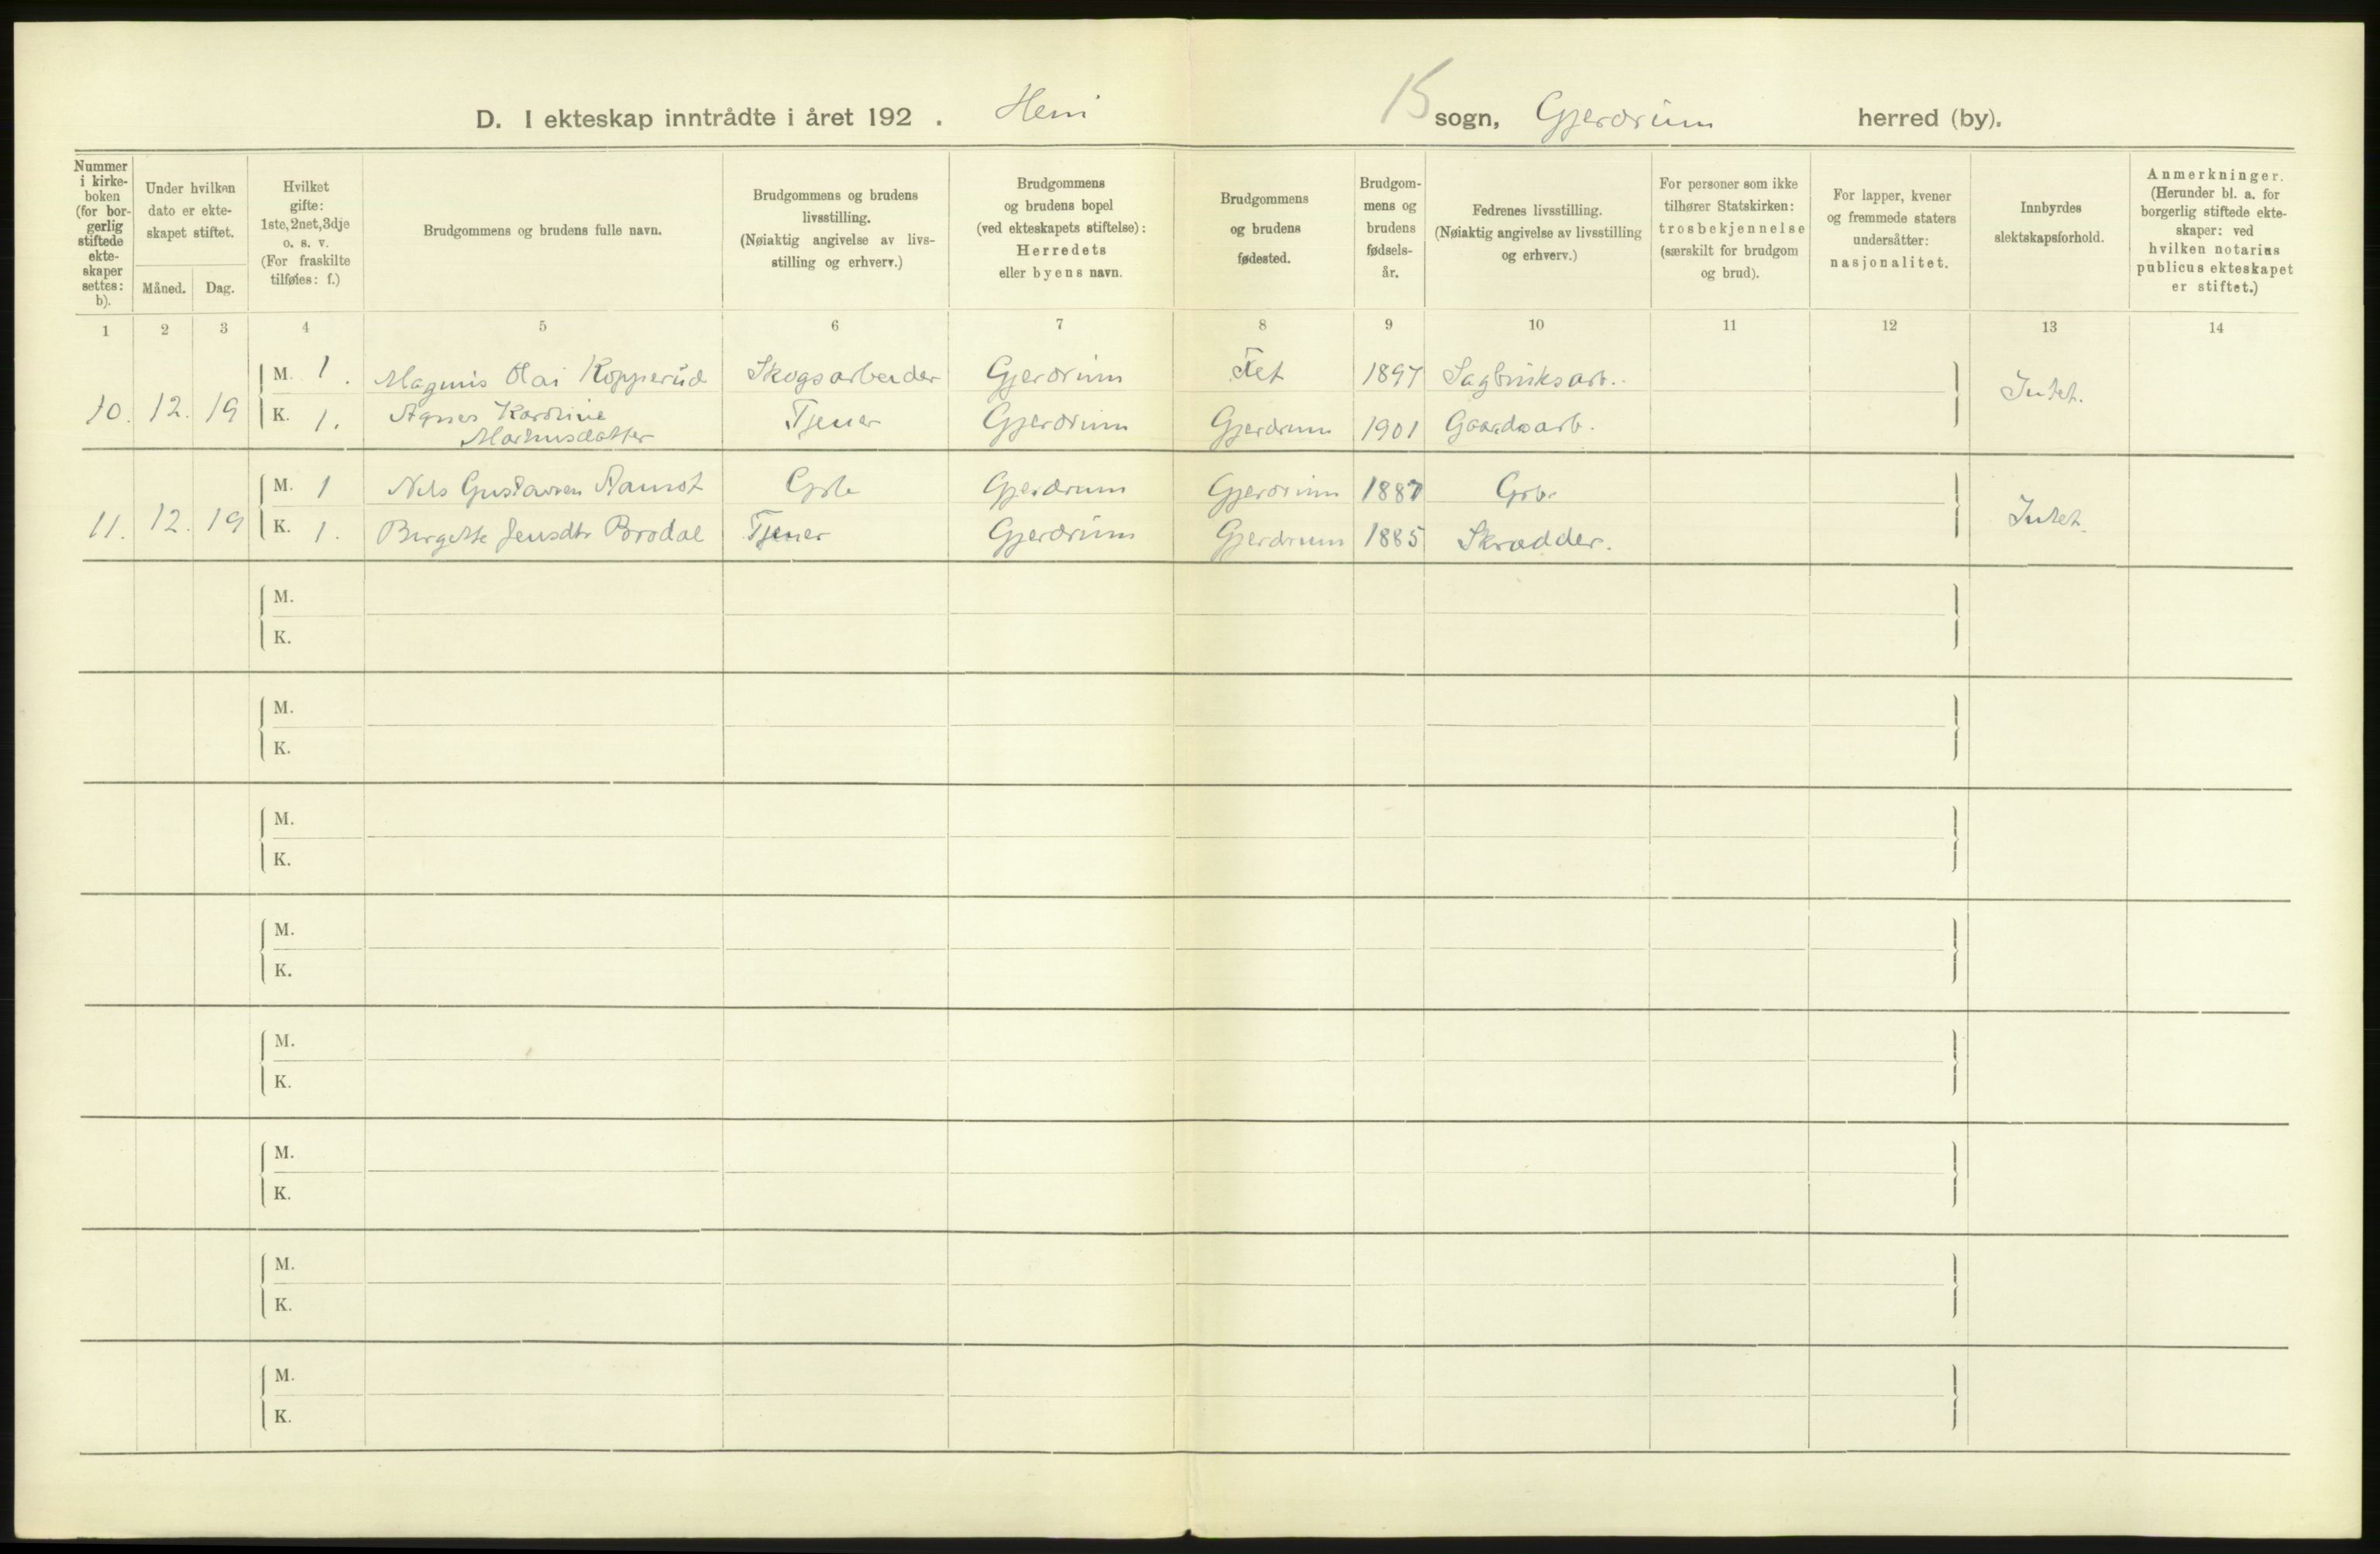 15
D. I ekteskap inntrådte i året 192 . Heni sogn, Gjerdrum herred (by).
Nummer i kirkeboken (for borgerlig stiftede ekteskaper settes: b).
Under hvilken dato er ekteskapet stiftet.
Måned. Dag.
Hvilket gifte: 1ste, 2net, 3dje o. s. v. (For fraskilte tilføies: f.)
Brudgommens og brudens fulle navn.
Brudgommens og brudens livsstilling. (Nøiaktig angivelse av livsstilling og erhverv.)
Brudgommens og brudens bopel (ved ekteskapets stiftelse): Herredets eller byens navn.
Brudgommens og brudens fødested.
Brudgommens og brudens fødselsår.
Fedrenes livsstilling. (Nøiaktig angivelse av livsstilling og erhverv.)
For personer som ikke tilhører Statskirken: trosbekjennelse (særskilt for brudgom og brud).
For lapper, kvener og fremmede staters undersåtter: nasjonalitet.
Innbyrdes slektskapsforhold.
Anmerkninger. (Herunder bl. a. for borgerlig stiftede ekteskaper: ved hvilken notarius publicus ekteskapet er stiftet.)
1 2 3 4 5 6 7 8 9 10 11 12 13 14
M. 1. Magnus Olai Kopperud Skogsarbeider Gjerdrum Fet 1897 Sagbruksarb.
10. 12. 19 K. 1. Agnes Karoline Gjerdrum Gjerdrum 1901 Gaardsarb. Intet.
Markusdatter Tjener
M. 1 Nils Gustavsen Aamot Grb Gjerdrum Gjerdrum 1887 Grb.
11. 12. 19 K. 1. Birgitte Jensdtr Brodal Tjener Gjerdrum Gjerdrum 1885 Skrædder. Intet.
M.
K.
M.
K.
M.
K.
M.
K.
M.
K.
M.
K.
M.
K.
M.
K.